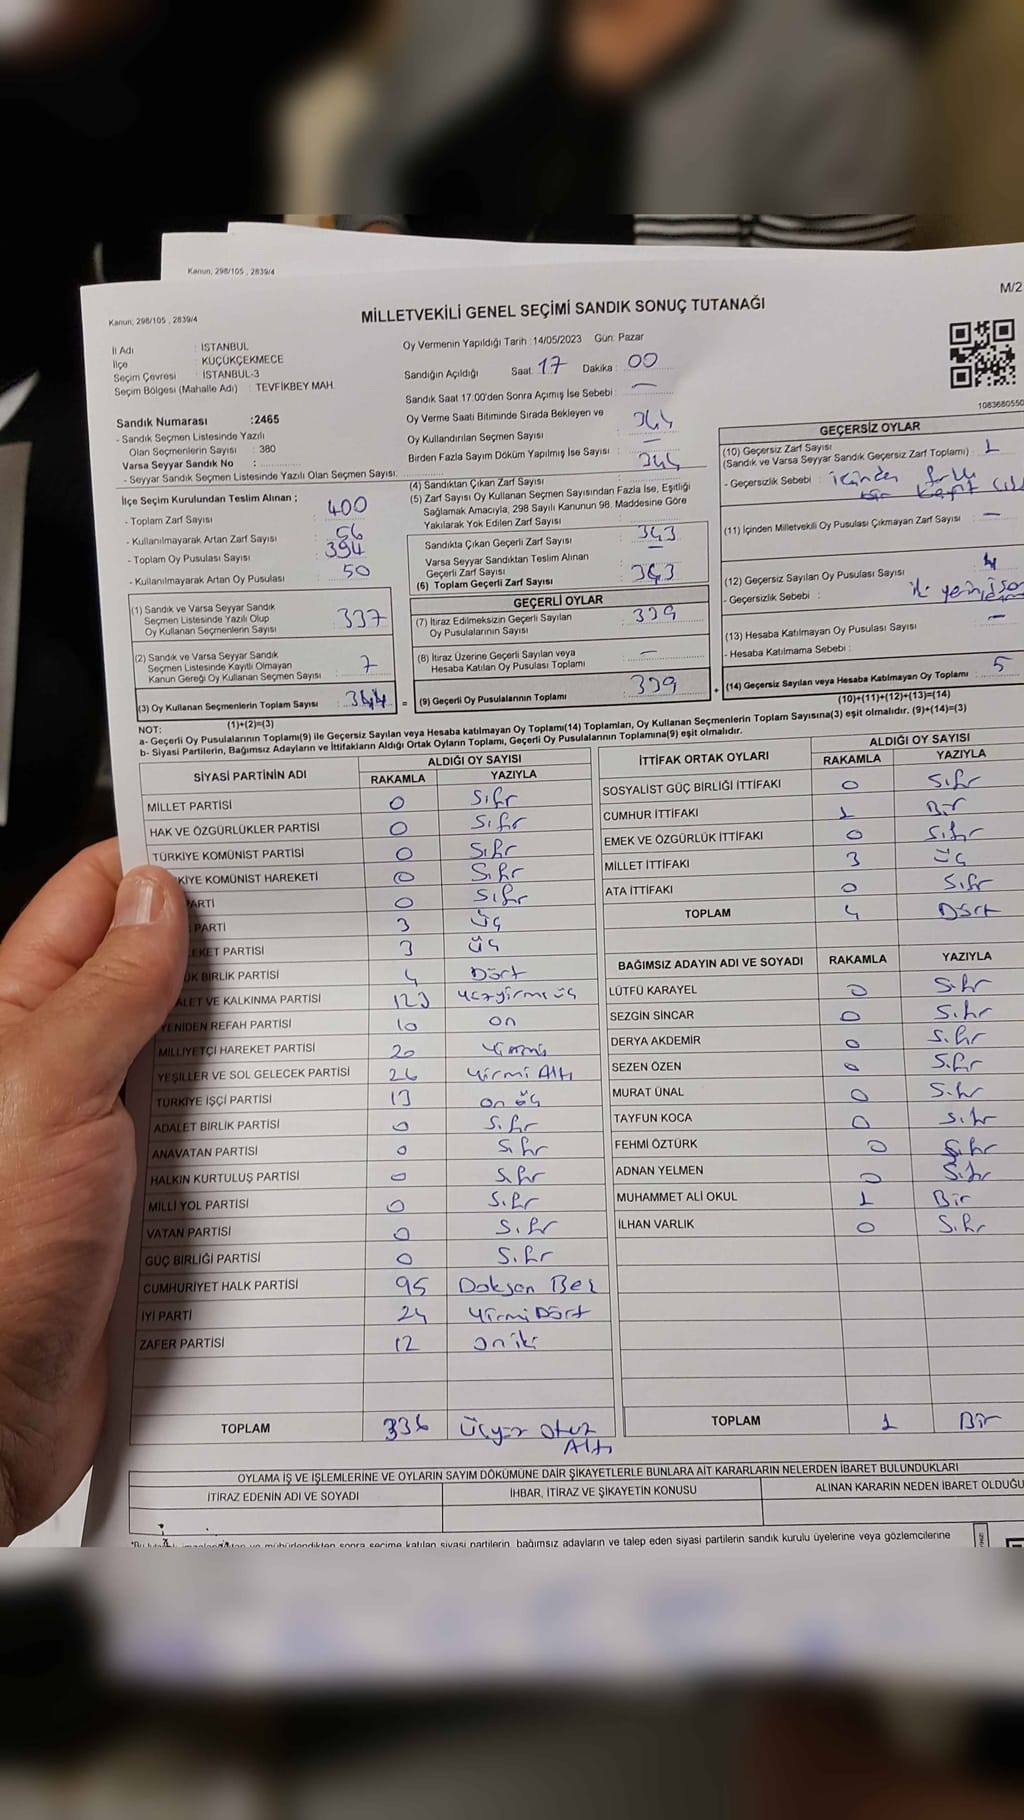 Kanun; 298/105 , 2839/4
Kanun; 298/105 , 2839/4
M/2
MİLLETVEKİLİ GENEL SEÇİMİ SANDIK SONUÇ TUTANAĞI
İl Adı : İSTANBUL
İlçe : KÜÇÜKÇEKMECE
Seçim Çevresi : İSTANBUL-3
Seçim Bölgesi (Mahalle Adı) : TEVFİKBEY MAH.
Oy Vermenin Yapıldığı Tarih :14/05/2023 Gün: Pazar
Sandığın Açıldığı Saat: 17 Dakika : 00
Sandık Saat 17:00'den Sonra Açılmış İse Sebebi : —
Oy Verme Saati Bitiminde Sırada Bekleyen ve
Oy Kullandırılan Seçmen Sayısı : 344
Birden Fazla Sayım Döküm Yapılmış İse Sayısı : —
Sandık Numarası :2465
- Sandık Seçmen Listesinde Yazılı
Olan Seçmenlerin Sayısı : 380
Varsa Seyyar Sandık No :
- Seyyar Sandık Seçmen Listesinde Yazılı Olan Seçmen Sayısı:
İlçe Seçim Kurulundan Teslim Alınan ;
- Toplam Zarf Sayısı : 400
- Kullanılmayarak Artan Zarf Sayısı : 56
- Toplam Oy Pusulası Sayısı : 394
- Kullanılmayarak Artan Oy Pusulası : 50
(1) Sandık ve Varsa Seyyar Sandık
Seçmen Listesinde Yazılı Olup
Oy Kullanan Seçmenlerin Sayısı : 337
(2) Sandık ve Varsa Seyyar Sandık
Seçmen Listesinde Kayıtlı Olmayan
Kanun Gereği Oy Kullanan Seçmen Sayısı : 7
(3) Oy Kullanan Seçmenlerin Toplam Sayısı : 344
(1)+(2)=(3)
(4) Sandıktan Çıkan Zarf Sayısı : 344
(5) Zarf Sayısı Oy Kullanan Seçmen Sayısından Fazla İse, Eşitliği
Sağlamak Amacıyla, 298 Sayılı Kanunun 98. Maddesine Göre
Yakılarak Yok Edilen Zarf Sayısı :
Sandıkta Çıkan Geçerli Zarf Sayısı : 343
Varsa Seyyar Sandıktan Teslim Alınan
Geçerli Zarf Sayısı : —
(6) Toplam Geçerli Zarf Sayısı : 343
GEÇERLİ OYLAR
(7) İtiraz Edilmeksizin Geçerli Sayılan
Oy Pusulalarının Sayısı : 339
(8) İtiraz Üzerine Geçerli Sayılan veya
Hesaba Katılan Oy Pusulası Toplamı : —
= (9) Geçerli Oy Pusulalarının Toplamı : 339 +
1083680550
GEÇERSİZ OYLAR
(10) Geçersiz Zarf Sayısı
(Sandık ve Varsa Seyyar Sandık Geçersiz Zarf Toplamı) : 1
- Geçersizlik Sebebi : içinden
(11) İçinden Milletvekili Oy Pusulası Çıkmayan Zarf Sayısı : —
(12) Geçersiz Sayılan Oy Pusulası Sayısı : 4
- Geçersizlik Sebebi :
(13) Hesaba Katılmayan Oy Pusulası Sayısı : —
- Hesaba Katılmama Sebebi :
(14) Geçersiz Sayılan veya Hesaba Katılmayan Oy Toplamı : 5
(10)+(11)+(12)+(13)=(14)
NOT:
a- Geçerli Oy Pusulalarının Toplamı(9) ile Geçersiz Sayılan veya Hesaba katılmayan Oy Toplamı(14) Toplamları, Oy Kullanan Seçmenlerin Toplam Sayısına(3) eşit olmalıdır. (9)+(14)=(3)
b- Siyasi Partilerin, Bağımsız Adayların ve İttifakların Aldığı Ortak Oyların Toplamı, Geçerli Oy Pusulalarının Toplamına(9) eşit olmalıdır.
SİYASİ PARTİNİN ADI ALDIĞI OY SAYISI
RAKAMLA YAZIYLA
MİLLET PARTİSİ 0 Sıfır
HAK VE ÖZGÜRLÜKLER PARTİSİ 0 Sıfır
TÜRKİYE KOMÜNİST PARTİSİ 0 Sıfır
KİYE KOMÜNİST HAREKETİ 0 Sıfır
PARTİ 0 Sıfır
PARTİ 3 üç
EKET PARTİSİ 3 üç
ÜK BİRLİK PARTİSİ 4 Dört
ALET VE KALKINMA PARTİSİ 123 yüzyirmiüç
YENİDEN REFAH PARTİSİ 10 on
MİLLİYETÇİ HAREKET PARTİSİ 20 yirmi
YEŞİLLER VE SOL GELECEK PARTİSİ 26 Yirmi Altı
TÜRKİYE İŞÇİ PARTİSİ 13 on üç
ADALET BİRLİK PARTİSİ 0 Sıfır
ANAVATAN PARTİSİ 0 Sıfır
HALKIN KURTULUŞ PARTİSİ 0 Sıfır
MİLLİ YOL PARTİSİ 0 Sıfır
VATAN PARTİSİ 0 Sıfır
GÜÇ BİRLİĞİ PARTİSİ 0 Sıfır
CUMHURİYET HALK PARTİSİ 95 Doksan Beş
İYİ PARTİ 24 Yirmi Dört
ZAFER PARTİSİ 12 oniki
TOPLAM 336 Üçyüz Otuz
Altı
İTTİFAK ORTAK OYLARI ALDIĞI OY SAYISI
RAKAMLA YAZIYLA
SOSYALİST GÜÇ BİRLİĞİ İTTİFAKI 0 Sıfır
CUMHUR İTTİFAKI 1 Bir
EMEK VE ÖZGÜRLÜK İTTİFAKI 0 Sıfır
MİLLET İTTİFAKI 3 üç
ATA İTTİFAKI 0 Sıfır
TOPLAM 4 Dört
BAĞIMSIZ ADAYIN ADI VE SOYADI RAKAMLA YAZIYLA
LÜTFÜ KARAYEL 0 Sıfır
SEZGİN SİNCAR 0 Sıfır
DERYA AKDEMİR 0 Sıfır
SEZEN ÖZEN 0 Sıfır
MURAT ÜNAL 0 Sıfır
TAYFUN KOCA 0 Sıfır
FEHMİ ÖZTÜRK 0 Sıfır
ADNAN YELMEN 0 Sıfır
MUHAMMET ALİ OKUL 1 Bir
İLHAN VARLIK 0 Sıfır
TOPLAM 1 Bir
OYLAMA İŞ VE İŞLEMLERİNE VE OYLARIN SAYIM DÖKÜMÜNE DAİR ŞİKAYETLERLE BUNLARA AİT KARARLARIN NELERDEN İBARET BULUNDUKLARI
İTİRAZ EDENİN ADI VE SOYADI İHBAR, İTİRAZ VE ŞİKAYETİN KONUSU ALINAN KARARIN NEDEN İBARET OLDUĞU
sonra seçime katılan siyasi partilerin, bağımsız adayların ve talep eden siyasi partilerin sandık kurulu üyelerine veya gözlemcilerine